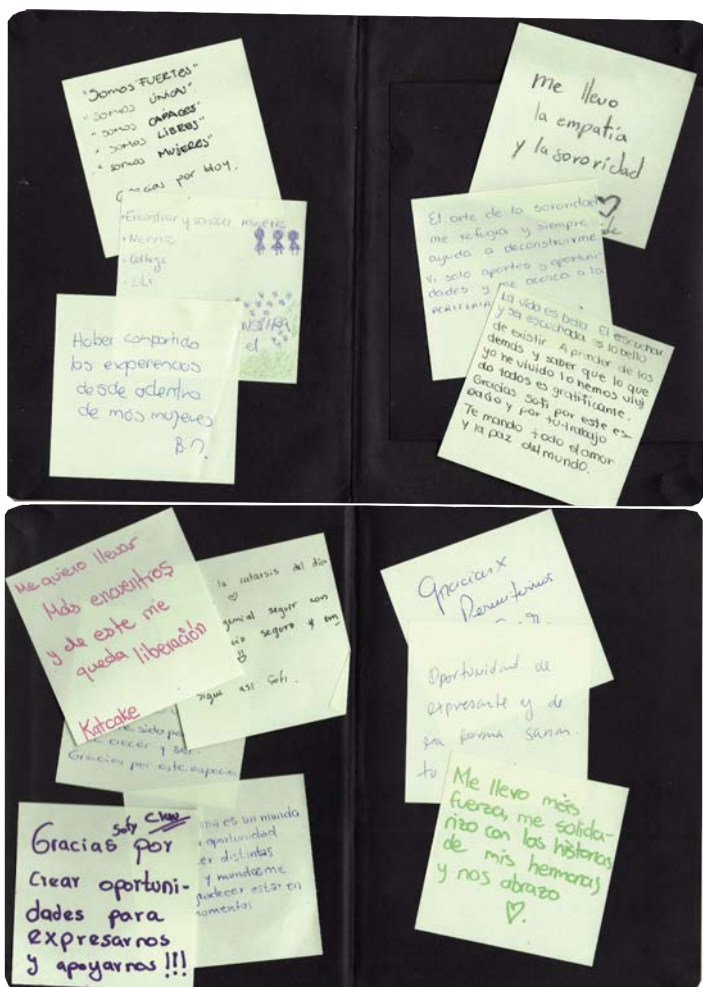 "Somos FUERTES"
"SOMOS ÚNICAS"
"SOMOS CAPACES"
"SOMOS LIBRES"
"somos MUJERES"
por Hoy.
• Encontrar y conocer mujeres
• Nervios
• Collage
Haber compartido
las experiencias
desde adentro
de más mujeres
me llevo
la empatía
y la sororidad
El arte de la sororidad
me refugia y siempre
ayuda a deconstruirme
vi solo aportes y oportuni-
dades y me acerca a la
La vida es bella. El escuchar
y ser escuchada es lo bello
de existir. Aprender de los
demás y saber que lo que
yo he vivido lo hemos vivi
do todos es gratificante.
Gracias Sofi por este es-
pacio y por tu trabajo
Te mando todo el amor
y la paz del mundo.
Me quiero llevar
Más encuentros
y de este me
queda liberación
Katcake
la catarsis del día
seguir con
seguro
sigue así Sofi.
crecer y ser
Gracias por este espacio
Sofy Clau
Gracias por
Crear oportuni-
dades para
expresarnos
y apoyarnos !!!
es un mundo
oportunidad
distintas
y mundos me
estar en
momentos
Gracias x
Permitirnos
Oportunidad de
expresarte y de
esa forma sanar
tu
Me llevo más
fuerza, me solida-
rizo con las historias
de mis hermanas
y nos abrazo